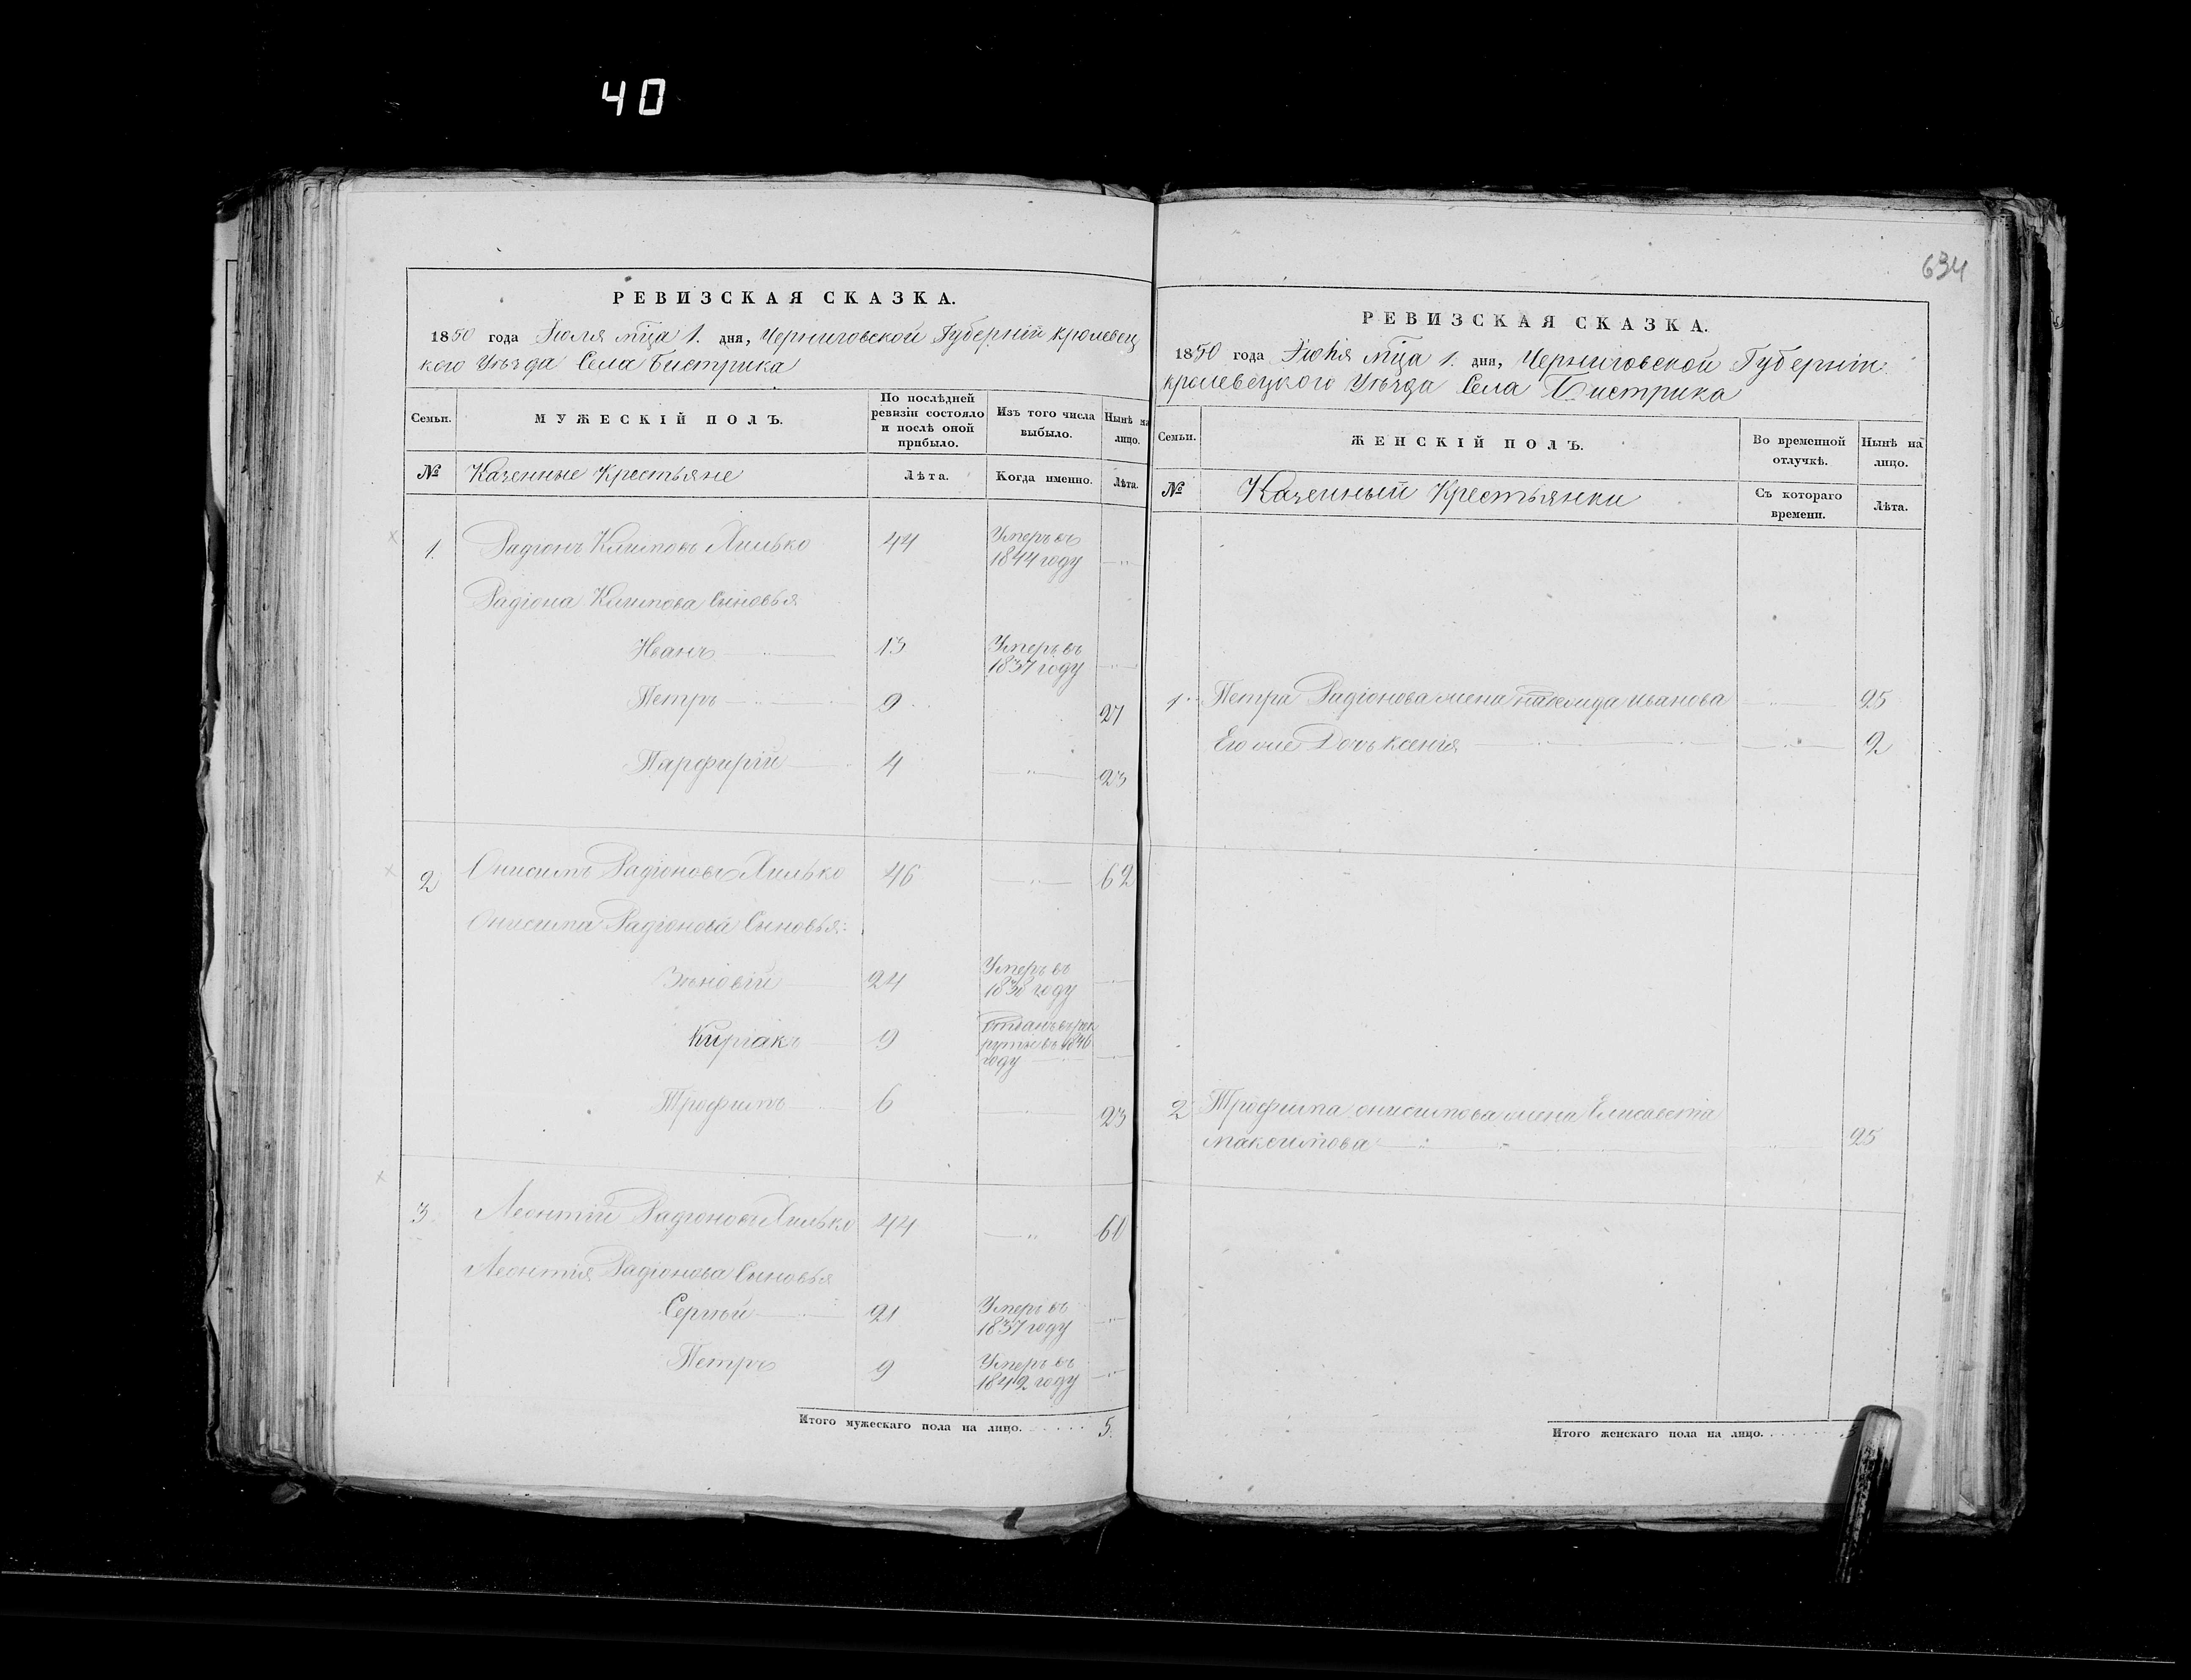 40
634
РЕВИЗСКАЯ СКАЗКА.
1850 года Іюля мца 1. дня, Черниговской Губерніи кролевец
кого Уѣзда Села Бистрика
Семьи.
МУЖЕСКІЙ ПОЛЪ.
По послѣдней
ревизіи состояло
и послѣ оной
прибыло.
Изъ того числа
выбыло.
Нынѣ на
лицо.
№ Казенные Крестьяне Лѣта. Когда именно. Лѣта.
1. Радіонъ Климовъ Хилько 44 Умеръ въ
1844 году
Радіона Климова Сыновья
Иванъ 13 Умеръ въ
1837 году
Петръ 9 27
Парфирій 4 23
2 Онисимъ Радіоновъ Хилько 46 62
Онисима Радіонова Сыновья:
Зѣновій 24 Умеръ въ
1838 году
Киріакъ 9 Отданъ въ рек
руты въ 1846
году
Трофимъ 6 23
3 Леонтій Радіоновъ Хилько 44 60
Леонтія Радіонова Сыновья
Сергѣй 21 Умеръ въ
1837 году
Петръ 9 Умеръ въ
1842 году
Итого мужескаго пола на лицо. 5.
РЕВИЗСКАЯ СКАЗКА.
1850 года Іюля мца 1. дня, Черниговской Губерніи
кролевецкого Уѣзда Села Бистрика
Семьи.
ЖЕНСКІЙ ПОЛЪ.
Во временной
отлучкѣ.
Нынѣ на
лицо.
№ Казенныи Крестьянки
Съ котораго
времени.
Лѣта.
1 Петра Радіонова жена Иванова 25
Его же Дочь Ксенія 2
2 Трофима онисимова жена Елисавета
Максимова 25
Итого женскаго пола на лицо.